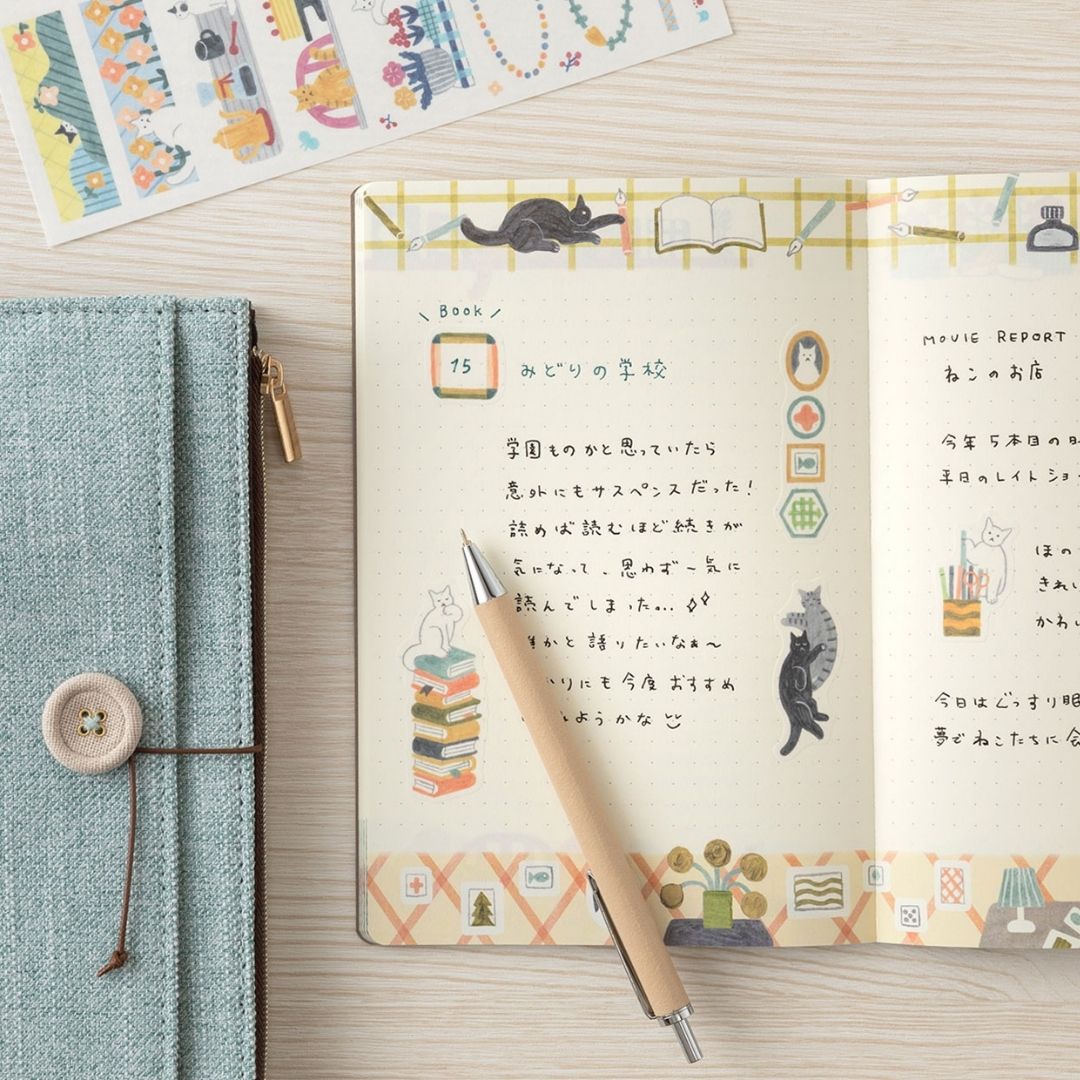 Book
15
みどりの学校
学園ものかと思っていたら
意外にもサスペンスだった!
読めば読むほど続きが
気になって、思わず一気に
読んでしまった...
かと語りたいなぁ〜
りにも今度おすすめ
ようかな
MOVIE REPORT
ねこのお店
今年5本目の
平日のレイトショ
ほの
きれい
かわい
今日はぐっすり眠
夢でねこたちに会